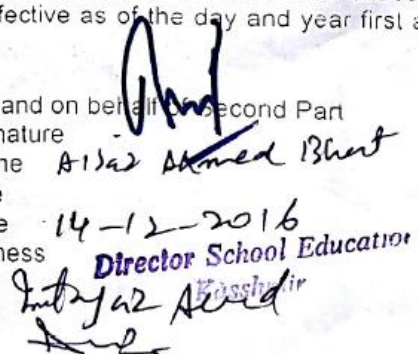 fective as of the day and year first a
and on behalf of Second Part
nature
me Aijaz Ahmed Bhat
e
e 14-12-2016
ness Director School Education
Kasshmir